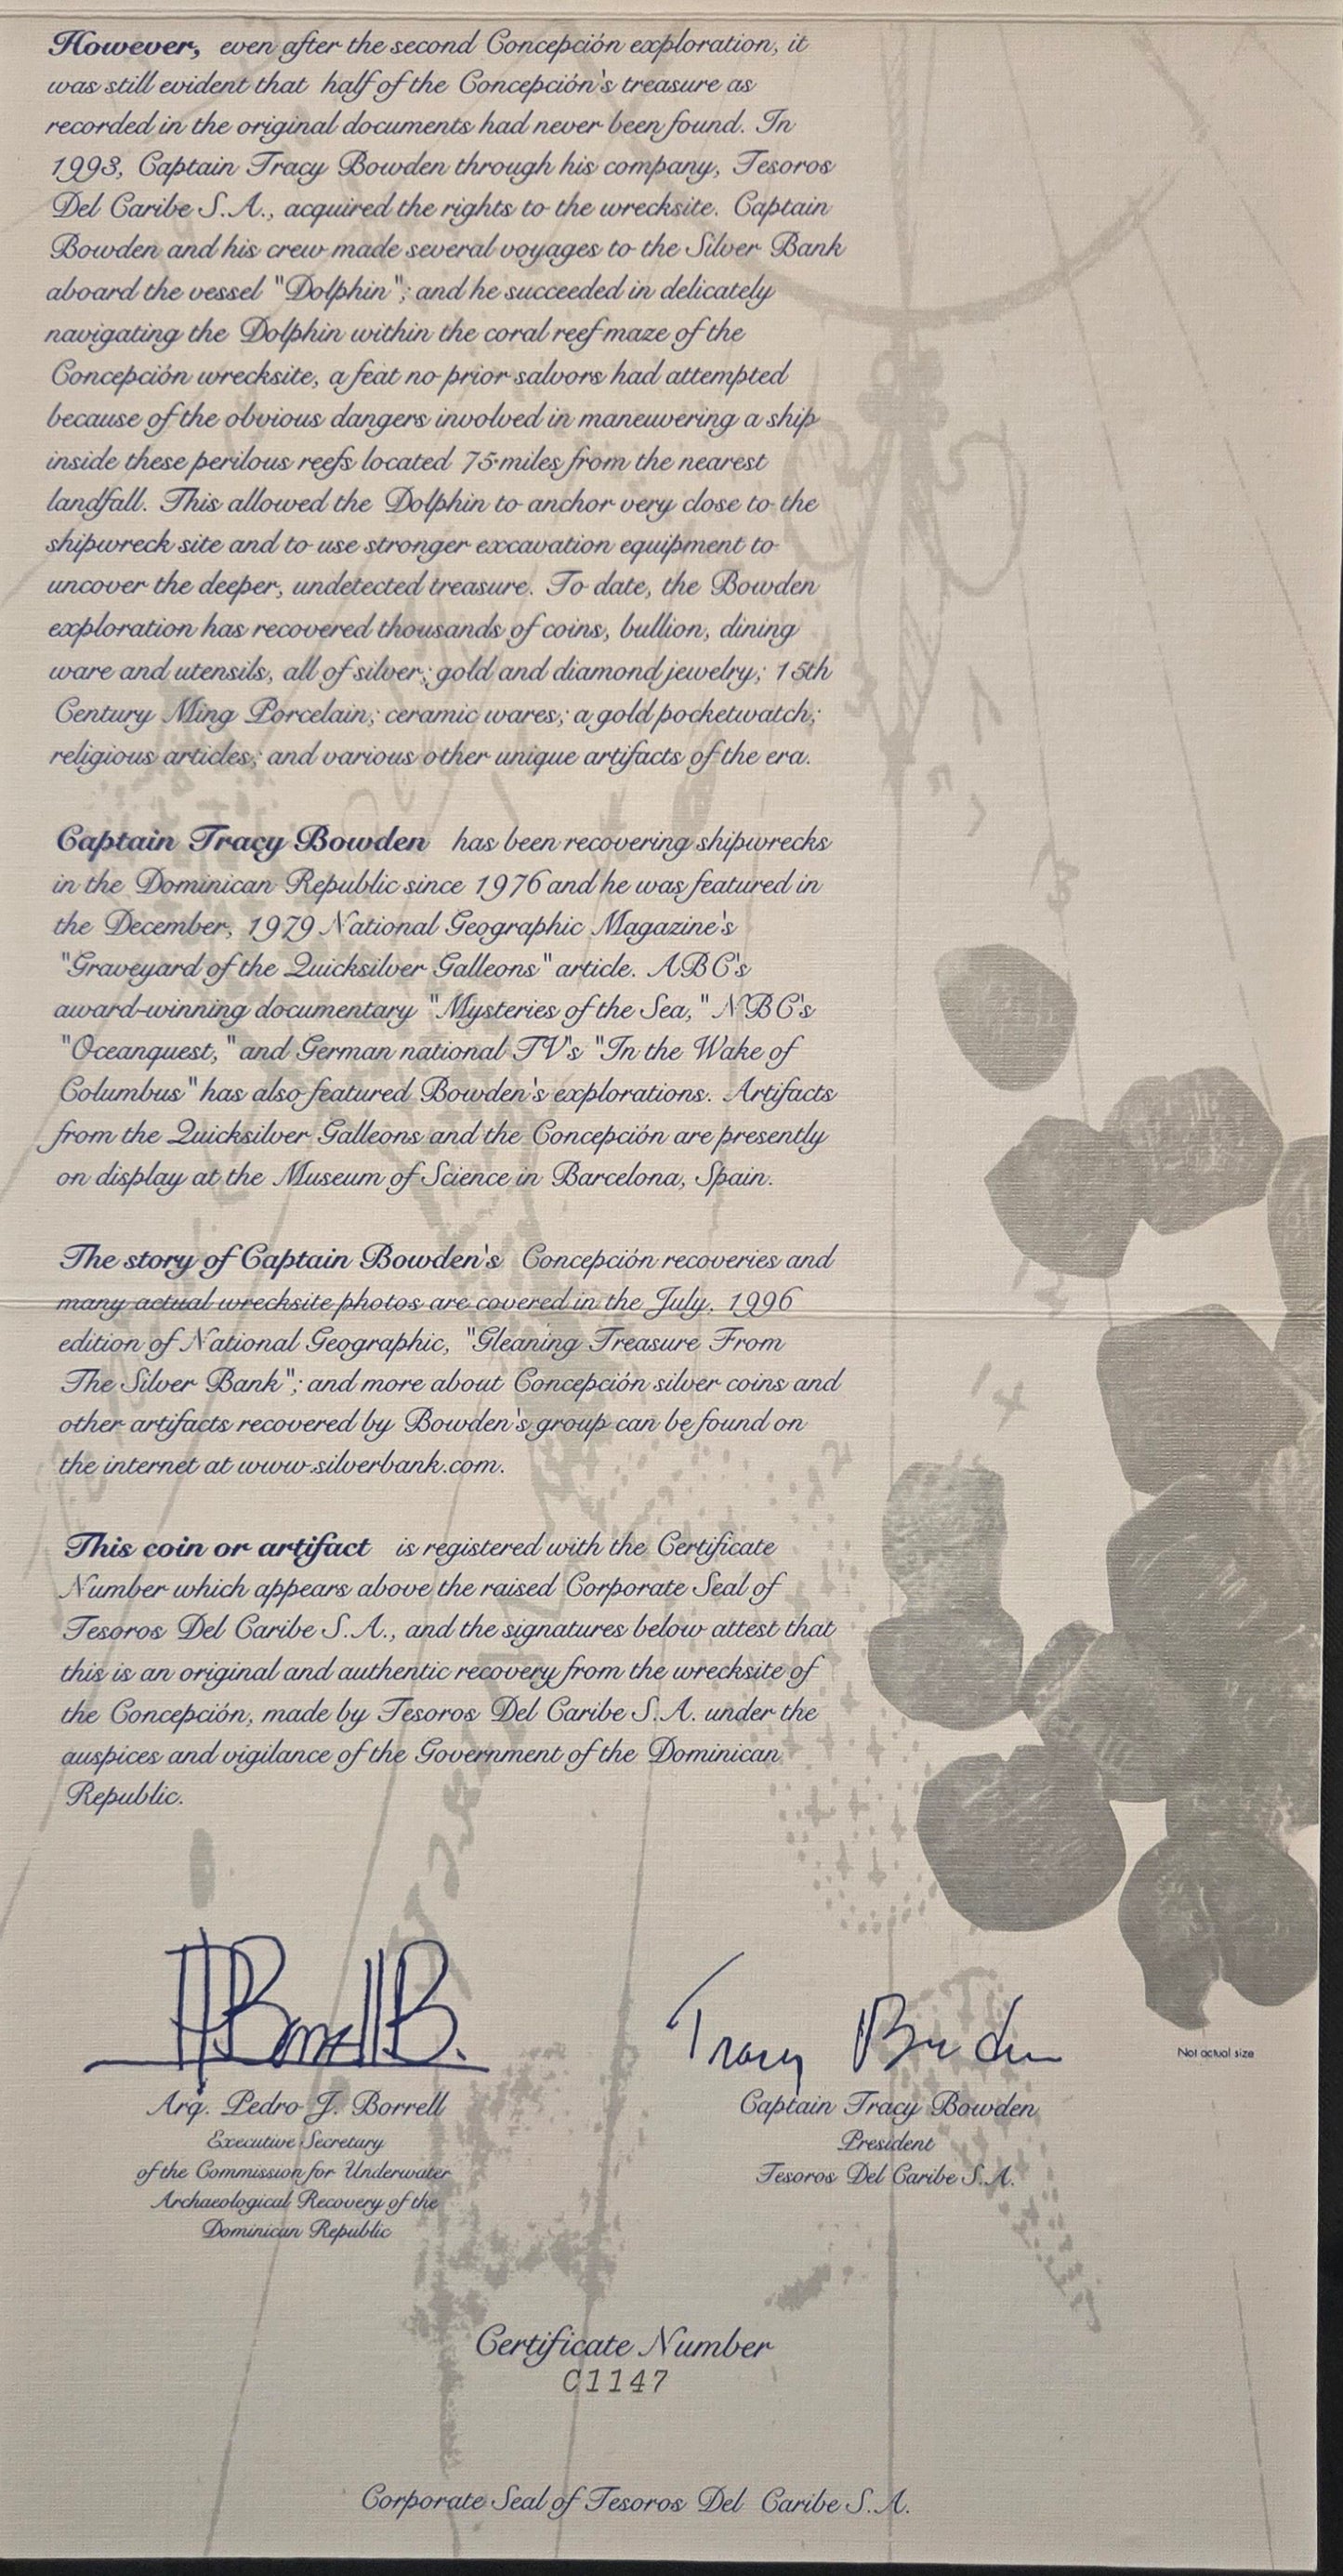 However, even after the second Concepción exploration, it
was still evident that half of the Concepción's treasure as
recorded in the original documents had never been found. In
1993, Captain Tracy Bowden through his company, Tesoros
Del Caribe S.A., acquired the rights to the wrecksite. Captain
Bowden and his crew made several voyages to the Silver Bank
aboard the vessel "Dolphin"; and he succeeded in delicately
navigating the Dolphin within the coral reef maze of the
Concepción wrecksite, a feat no prior salvors had attempted
because of the obvious dangers involved in maneuvering a ship
inside these perilous reefs located 75 miles from the nearest
landfall. This allowed the Dolphin to anchor very close to the
shipwreck site and to use stronger excavation equipment to
uncover the deeper, undetected treasure. To date, the Bowden
exploration has recovered thousands of coins, bullion, dining
ware and utensils, all of silver; gold and diamond jewelry; 15th
Century Ming Porcelain; ceramic wares; a gold pocketwatch;
religious articles; and various other unique artifacts of the era.
Captain Tracy Bowden has been recovering shipwrecks
in the Dominican Republic since 1976 and he was featured in
the December, 1979 National Geographic Magazine's
"Graveyard of the Quicksilver Galleons" article. ABC's
award-winning documentary "Mysteries of the Sea," NBC's
"Oceanquest," and German national TV's "In the Wake of
Columbus" has also featured Bowden's explorations. Artifacts
from the Quicksilver Galleons and the Concepción are presently
on display at the Museum of Science in Barcelona, Spain.
The story of Captain Bowden's Concepción recoveries and
many actual wrecksite photos are covered in the July, 1996
edition of National Geographic, "Gleaning Treasure From
The Silver Bank"; and more about Concepción silver coins and
other artifacts recovered by Bowden's group can be found on
the internet at www.silverbank.com.
This coin or artifact is registered with the Certificate
Number which appears above the raised Corporate Seal of
Tesoros Del Caribe S.A., and the signatures below attest that
this is an original and authentic recovery from the wrecksite of
the Concepción, made by Tesoros Del Caribe S.A. under the
auspices and vigilance of the Government of the Dominican
Republic.
Tracy Bowden
Arq. Pedro J. Borrell
Executive Secretary
of the Commission for Underwater
Archaeological Recovery of the
Dominican Republic
Captain Tracy Bowden
President
Tesoros Del Caribe S.A.
Not actual size
Certificate Number
C1147
Corporate Seal of Tesoros Del Caribe S.A.